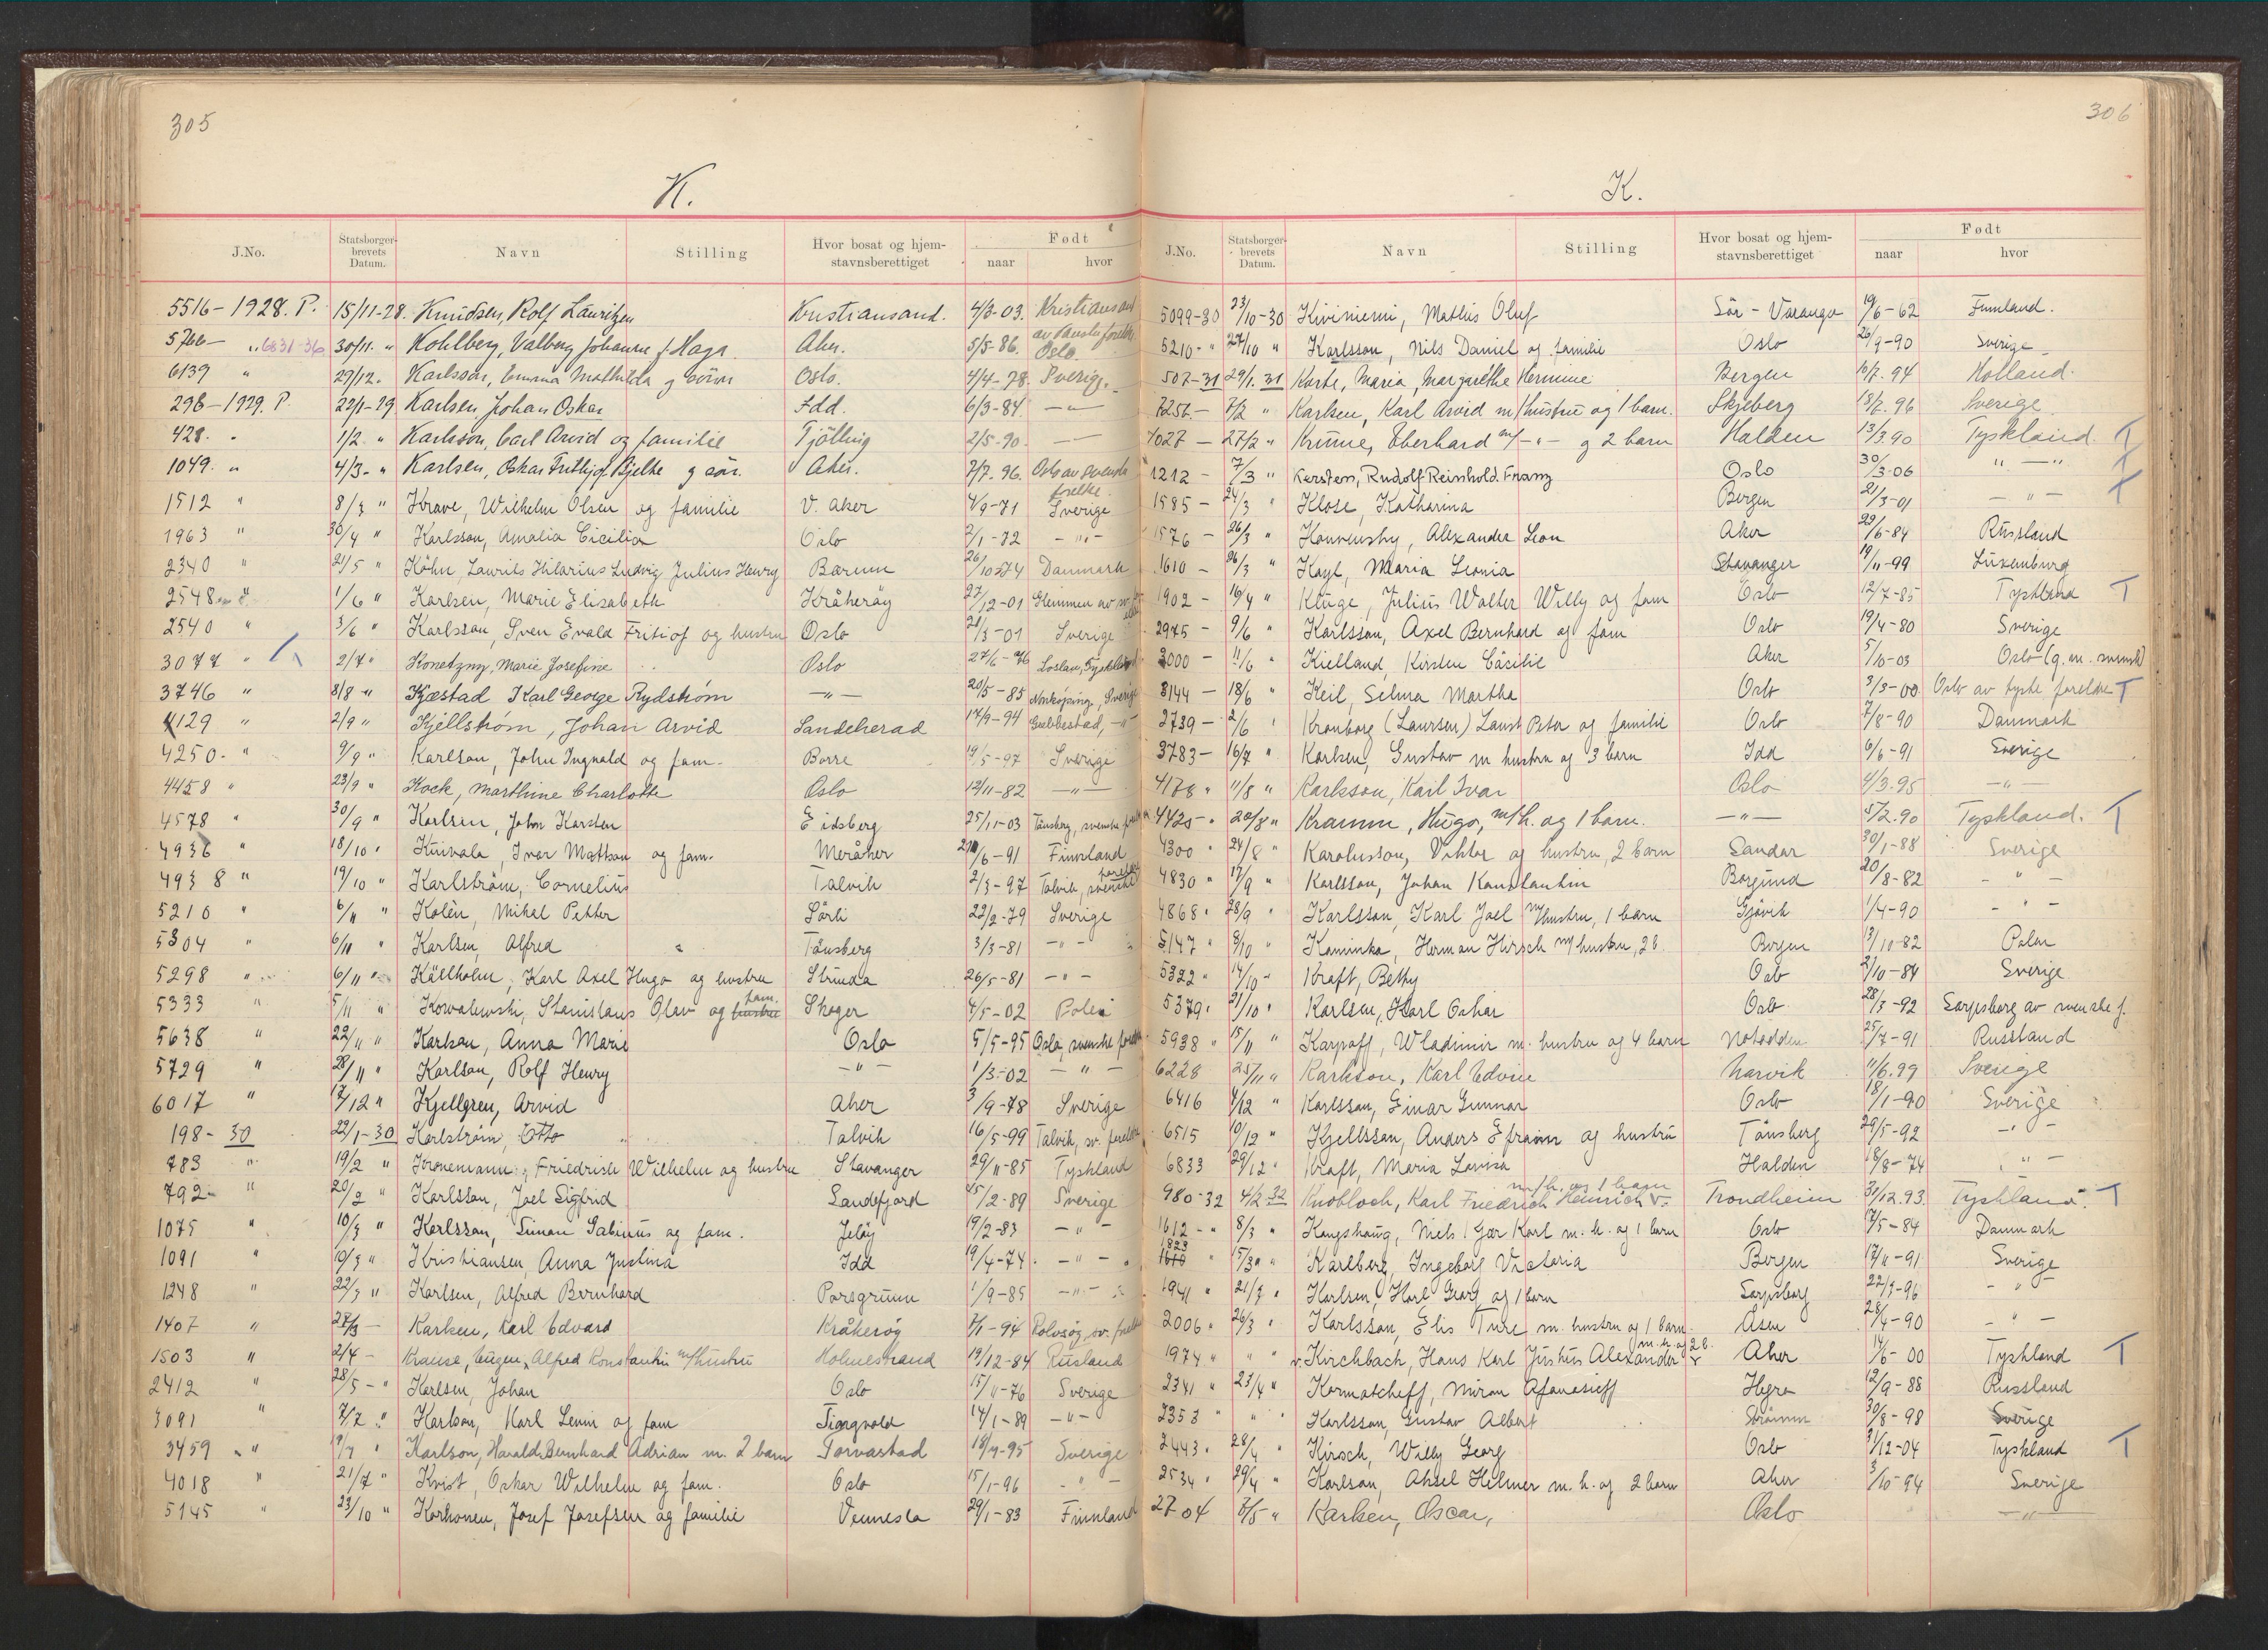 305
K.
J.No. Statsborgerbrevets Datum. Navn Stilling Hvor bosat og hjemstavnsberettiget Født naar hvor
5516 – 1928. P. 15/11-28. Knudsen, Rolf Lauritzen Kristiansand. 4/3-03. Kristiansand av danske foreldre
5766 – „ 6831-36 30/11. „ Kohlberg, Valborg Johanne f. Haga Aker. 5/5-86. Oslo.
6139 „ 29/12. „ Karlsson, Emma Mathilda g sønn Oslo. 4/4-78. Sverige.
298 – 1929. P. 22/1-29 Karlsen, Johan Oskar Idd. 6/3-84. —„—
428. „ 1/2. „ Karlsson, Carl Arvid og familie Tjölling 2/5-90. —„—
1049. „ 4/3- „ Karlsen, Oskar Frithjof Bjelke g sön. Aker. 7/7. 96. Oslo av svenske forelke.
1512 „ 8/3 „ Krave, Wilhelm Olsen og familie V. Aker 4/9-71 Sverige
1963 „ 30/4 „ Karlsson, Amalia Cicilia Oslo 2/1-72 – „ –
2340 „ 21/5 „ Köhn, Laurits Hilarius Ludvig Julius Henry Bærum 26/10-74 Danmark
2548 „ 1/6 „ Karlsen, Marie Elisabeth Kråkeröy 27/12-01 Glemmen av sv.
2540 „ 3/6 „ Karlsson, Sven Evald Fritiof og hustru Oslo 21/3-01 Sverige
3077 „ T 2/7 „ Konetzny, Marie Josefine Oslo 27/6-76 Loslau, Tyskland
3746 „ 8/8 „ Kjæstad Karl George Rydstrøm —„— 20/5-85 Norköping, Sverige
4129 „ 2/9 „ Kjellstrøm, Johan Arvid Sandeherad 17/9-94 Grebbestad, –„–
4250. „ 9/9 „ Karlson, John Ingvald og fam. Borre 19/5-97 Sverige
4458 „ 23/9 „ Kock, Marthine Charlotte Oslo 12/11-82 —„—
4578 „ 30/9 „ Karlsen, John Karsten Eidsberg 25/11-03 Tönsberg, svenske foreldre
4936 „ 18/10 „ Kuivala, Ivar Mattson og fam. Meråker 21/6-91 Finnland
4938 „ 19/10 „ Karlström, Cornelius Talvik 2/3-97 Talvik, svenske foreldre
5210 „ 6/11 „ Kolèn, Mikal Petter Sörli 22/2-79 Sverige
5304 „ 6/11 „ Karlsen, Alfred Tönsberg 3/3-81 – „ –
5298 „ 6/11 „ Källholm, Karl Axel Hugo og hustru Strinda 26/5-81 – „ –
5333 „ 5/11 „ Kowalewski, Stanislaus Olav og hustru fam. Skoger 4/5-02 Polen
5638 „ 22/11 „ Karlson, Anna Marie Oslo 5/5-95 Oslo, svenske foreldre
5729 „ 28/11 „ Karlson, Rolf Henry – „ – 1/3-02 – „ –
6017 „ 17/12 „ Kjellgren, Arvid Aker 3/9-78 Sverige
198 – 30 22/1-30 Karlström, Otto Talvik 16/5-99 Talvik, sv. foreldre
783 „ 19/2 „ Kronemann, Friedrich Wilhelm og hustru Stavanger 29/11-85 Tyskland
792 „ 20/2 „ Karlsson, Joel Sigfrid Sandefjord 15/2-89 Sverige
1075 „ 10/3 „ Karlsson, Simon Gabinus og fam. Jelöy 19/2-83 – „ –
1091 „ 10/3 „ Kristiansen, Anna Justina Idd 19/4-74 – „ –
1248 „ 22/3 „ Karlsen, Alfred Bernhard Porsgrunn 1/9-85 – „ –
1407 „ 27/3 – Karlsen, Karl Edvard Kråkeröy 7/1-94 Rolvsöy, sv. foreldre
1503 „ 2/4 – Krause, Eugen, Alfred Konstantin m/hustru Holmestrand 19/12-84 Rusland
2412 „ 28/5 – „ Karlsen, Johan Oslo 15/11-76 Sverige
3091 „ 7/7 „ Karlson, Karl Levin og fam Tingvold 14/1-89 – „ –
3459 „ 9/7 „ Karlson, Harald Bernhard Adrian m. 2 barn Torvastad 18/9-95 Sverige
4018 „ 21/7 „ Kvist, Oskar Wilhelm og fam. Oslo 15/1-96 „ –
5145 „ 23/10 „ Korhonen, Josef Josefsen og familie Vennesla 29/1-83 Finnland
306
K.
J.No. Statsborgerbrevets Datum. Navn Stilling Hvor bosat og hjemstavnsberettiget Født naar hvor
5099-30 23/10-30 Kiviniemi, Mathis Oluf Sör-Varanger 19/6-62 Finnland.
5210- „ 27/10 „ Karlsson, Nils Daniel og familie Oslo 26/9-90 Sverige
507-31 29/1.31 Korte, Maria, Margarethe Hermine Bergen 10/7. 94 Holland.
7256 – 7/2 „ Karlsen, Karl Arvid m/hustru og 1 barn. Skjeberg 18/7. 96 Sverige
1027 – 27/2 „ Krume, Eberhard m/ –„– g 2 barn Halden 13/3.90 Tyskland. T
1212 – 7/3 „ Kersten, Rudolf Reinhold Franz Oslo 30/3-06 „ — „ T
1585 – 24/3 „ Klose, Katharina Bergen 21/3-01 – „ – T
1576 – 26/3 „ Konvensky, Alexander Leon Aker 29/6-84 Russland
1610 – 26/3 „ Kayl, Maria Leonia Stavanger 19/11-99 Luxenburg
1902 – 16/4 „ Kluge, Julius Walter Willy og fam Oslo 12/7-85 Tyskland T
2945 – 9/6 „ Karlsson, Axel Bernhard og fam Oslo 19/4-80 Sverige
3000 – 11/6 „ Kielland, Kirsten Cäcilie Aker 5/10-03 Oslo (g. m. svensk)
3144 – 18/6 „ Keil, Selma Martha Oslo 3/3-00 Oslo av tyske foreldre T
2739 – 2/6 „ Kronborg (Laursen) Laust Peter og familie Oslo 7/8-90 Danmark
3783 – 16/7 „ Karlsen, Gustav m hustru og 3 barn Idd 6/6-91 Sverige
4178 „ 11/8 „ Karlsson, Karl Ivar Oslo 4/3.95 —„—
4425 – „ 20/8 „ Kramm, Hugo, m/h. og 1 barn. —„— 5/2.90 Tyskland. T
4300 „ 24/8 „ Karolusson, Viktor og hustru, 2 barn Sandar 30/1-88 Sverige
4830 „ 17/9 „ Karlsson, Johan Konstantin Borgund 20/8-82 – „ –
4868 „ 28/9 „ Karlsson, Karl Joel m/hustru, 1 barn Gjövik 1/4-90 – „ –
5147 „ 8/10 „ Kaminka, Herman Hirsch m/hustru, 2 b. Bergen 13/10-82 Polen
5322 „ 14/10 „ Kraft, Betty Oslo 2/10-84 Sverige
5379 „ 21/10 „ Karlsen, Karl Oskar Oslo 28/3-92 Sarpsborg av svenske f.
5938 „ 15/11 „ Karpoff, Wladimir m. hustru og 4 barn Notodden 25/7-91 Russland
6228 25/11 „ Karlsson, Karl Edvin Narvik 11/6.99 Sverige
6416 4/12 „ Karlsson, Einar Gunnar Oslo 18/1-90 Sverige
6515 10/12 „ Kjellsson, Anders Efraim og hustru Tönsberg 29/5-92 – „ –
6833 29/12 „ Kraft, Maria Lovisa Halden 18/8-74 „ –
980-32 4/2 32 Knobloch, Karl Friedrich Heinrich v. m/h. og 1 barn Trondheim 31/12.93. Tyskland. T
1612 – „ 8/3 „ Kongshaug, Niels Igor Karl m. h. og 1 barn Oslo 17/5-84 Danmark
1823 1610 „ 15/3 „ Karlberg, Ingeborg Victoria Bergen 17/11-91 Sverige
1941 „ 21/3 „ Karlsen, Karl Georg og 1 barn Sarpsborg 22/3-96 – „ –
2006 „ 26/3 „ Karlsson, Elis Ture m. hustru og 1 barn Åsen 28/4-90 – „ –
1974 „ „ „ v. Kirchbach, Hans Karl Justus Alexander m. h. og 2 b. Aker 14/6-00 Tyskland T
2341 „ 23/4 „ Kormatcheff, Miron Afanasieff Hegra 12/9-88 Russland
2353 „ „ „ Karlsson, Gustav Albert Strömm 30/8-98 Sverige
2443 „ 28/4 „ Kirsch, Willy Georg Oslo 31/12-04 Tyskland T
2534 „ 29/4 „ Karlson, Aksel Helmer m. h. og 2 barn Aker 3/10-94 Sverige
2704 7/5 „ Karlsen, Oscar, Oslo —„—